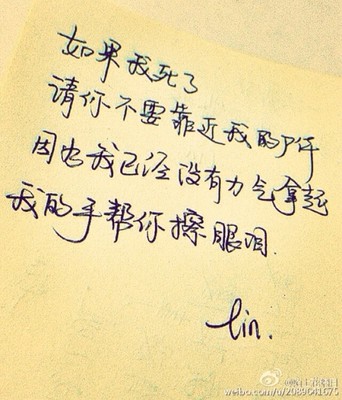 如果我死了
请你不要靠近我的尸体
因为我已经没有力气拿起
我的手帮你擦眼泪.
lin.
weibo.com/u/2089641675